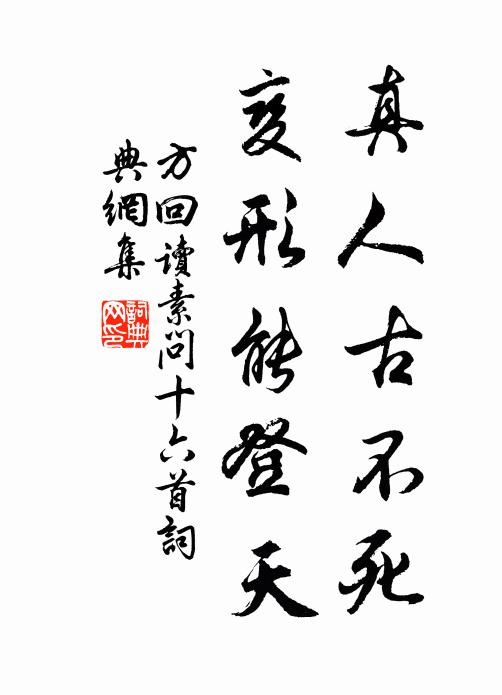 真人古不死
变形能登天
方回讀素問十六首詞
典網集
詞典
网印